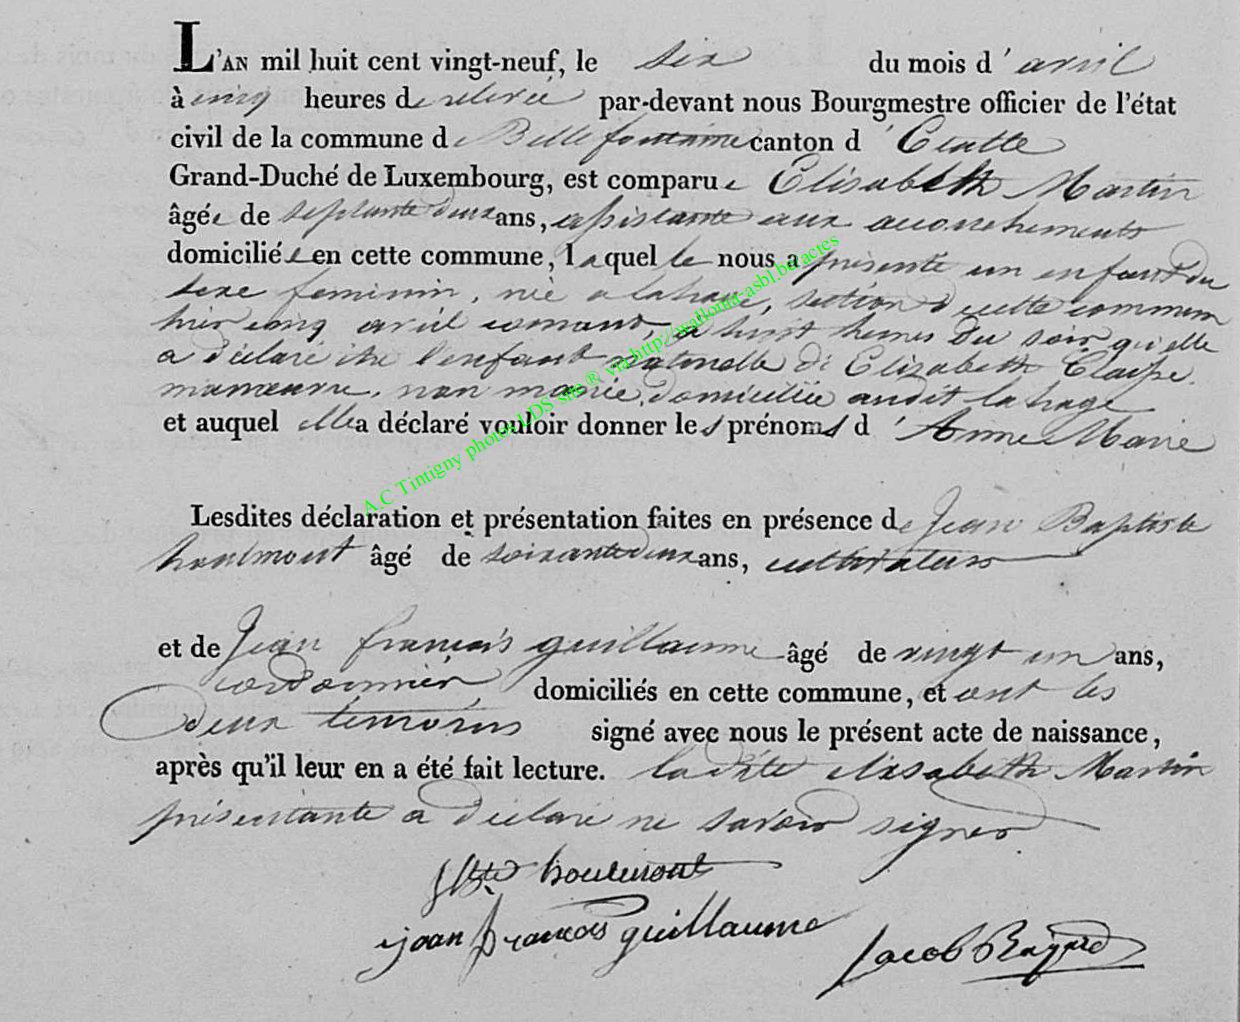 L'AN mil huit cent vingt-neuf, le six du mois d'avril
à cinq heures de relevée par-devant nous Bourgmestre officier de l'état
civil de la commune de Bellefontaine canton d'Etalle
Grand-Duché de Luxembourg, est comparue Elisabeth Martin
âgée de septante deux ans, assistante aux accouchements
domiciliée en cette commune, laquelle nous a présenté un enfant du
sexe feminin, né a lahage, section d cette commune
hier cinq avril courant, a huit heures du soir qu'elle
a déclaré être l'enfant naturelle de Elizabeth
manœuvre, non mariée, domiciliée audit lahage
et auquel elle a déclaré vouloir donner les prénoms d'Anne Marie
Lesdites déclaration et présentation faites en présence de Jean Baptiste
houlmont âgé de soixante deux ans, cultivateur
et de Jean françois guillaume âgé de vingt un ans,
cordonnier domiciliés en cette commune, et ont les
deux témoins signé avec nous le présent acte de naissance,
après qu'il leur en a été fait lecture. ladite elisabeth Martin
présentante a déclaré ne savoir signer
houlmont
jean françois guillaume
Jacob
A.C Tintigny photos LDS site ® via http://wallonia-asbl.be/actes